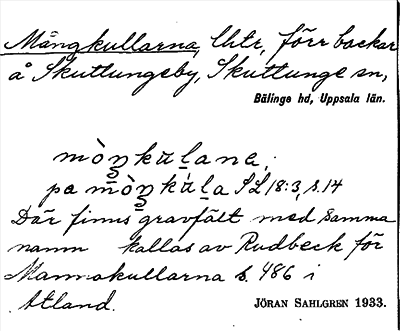 Mångkullarna, lhtr, förr backar
å Skuttungeby, Skuttunge sn,
Bälinge hd, Uppsala län.
mòŋkulana,
pa mòŋkúla SL 18:3, s. 14
Där finns gravfält med samma
namn kallas av Rudbeck för
Mannakullarna s. 486 i
Atland.
JÖRAN SAHLGREN 1933.